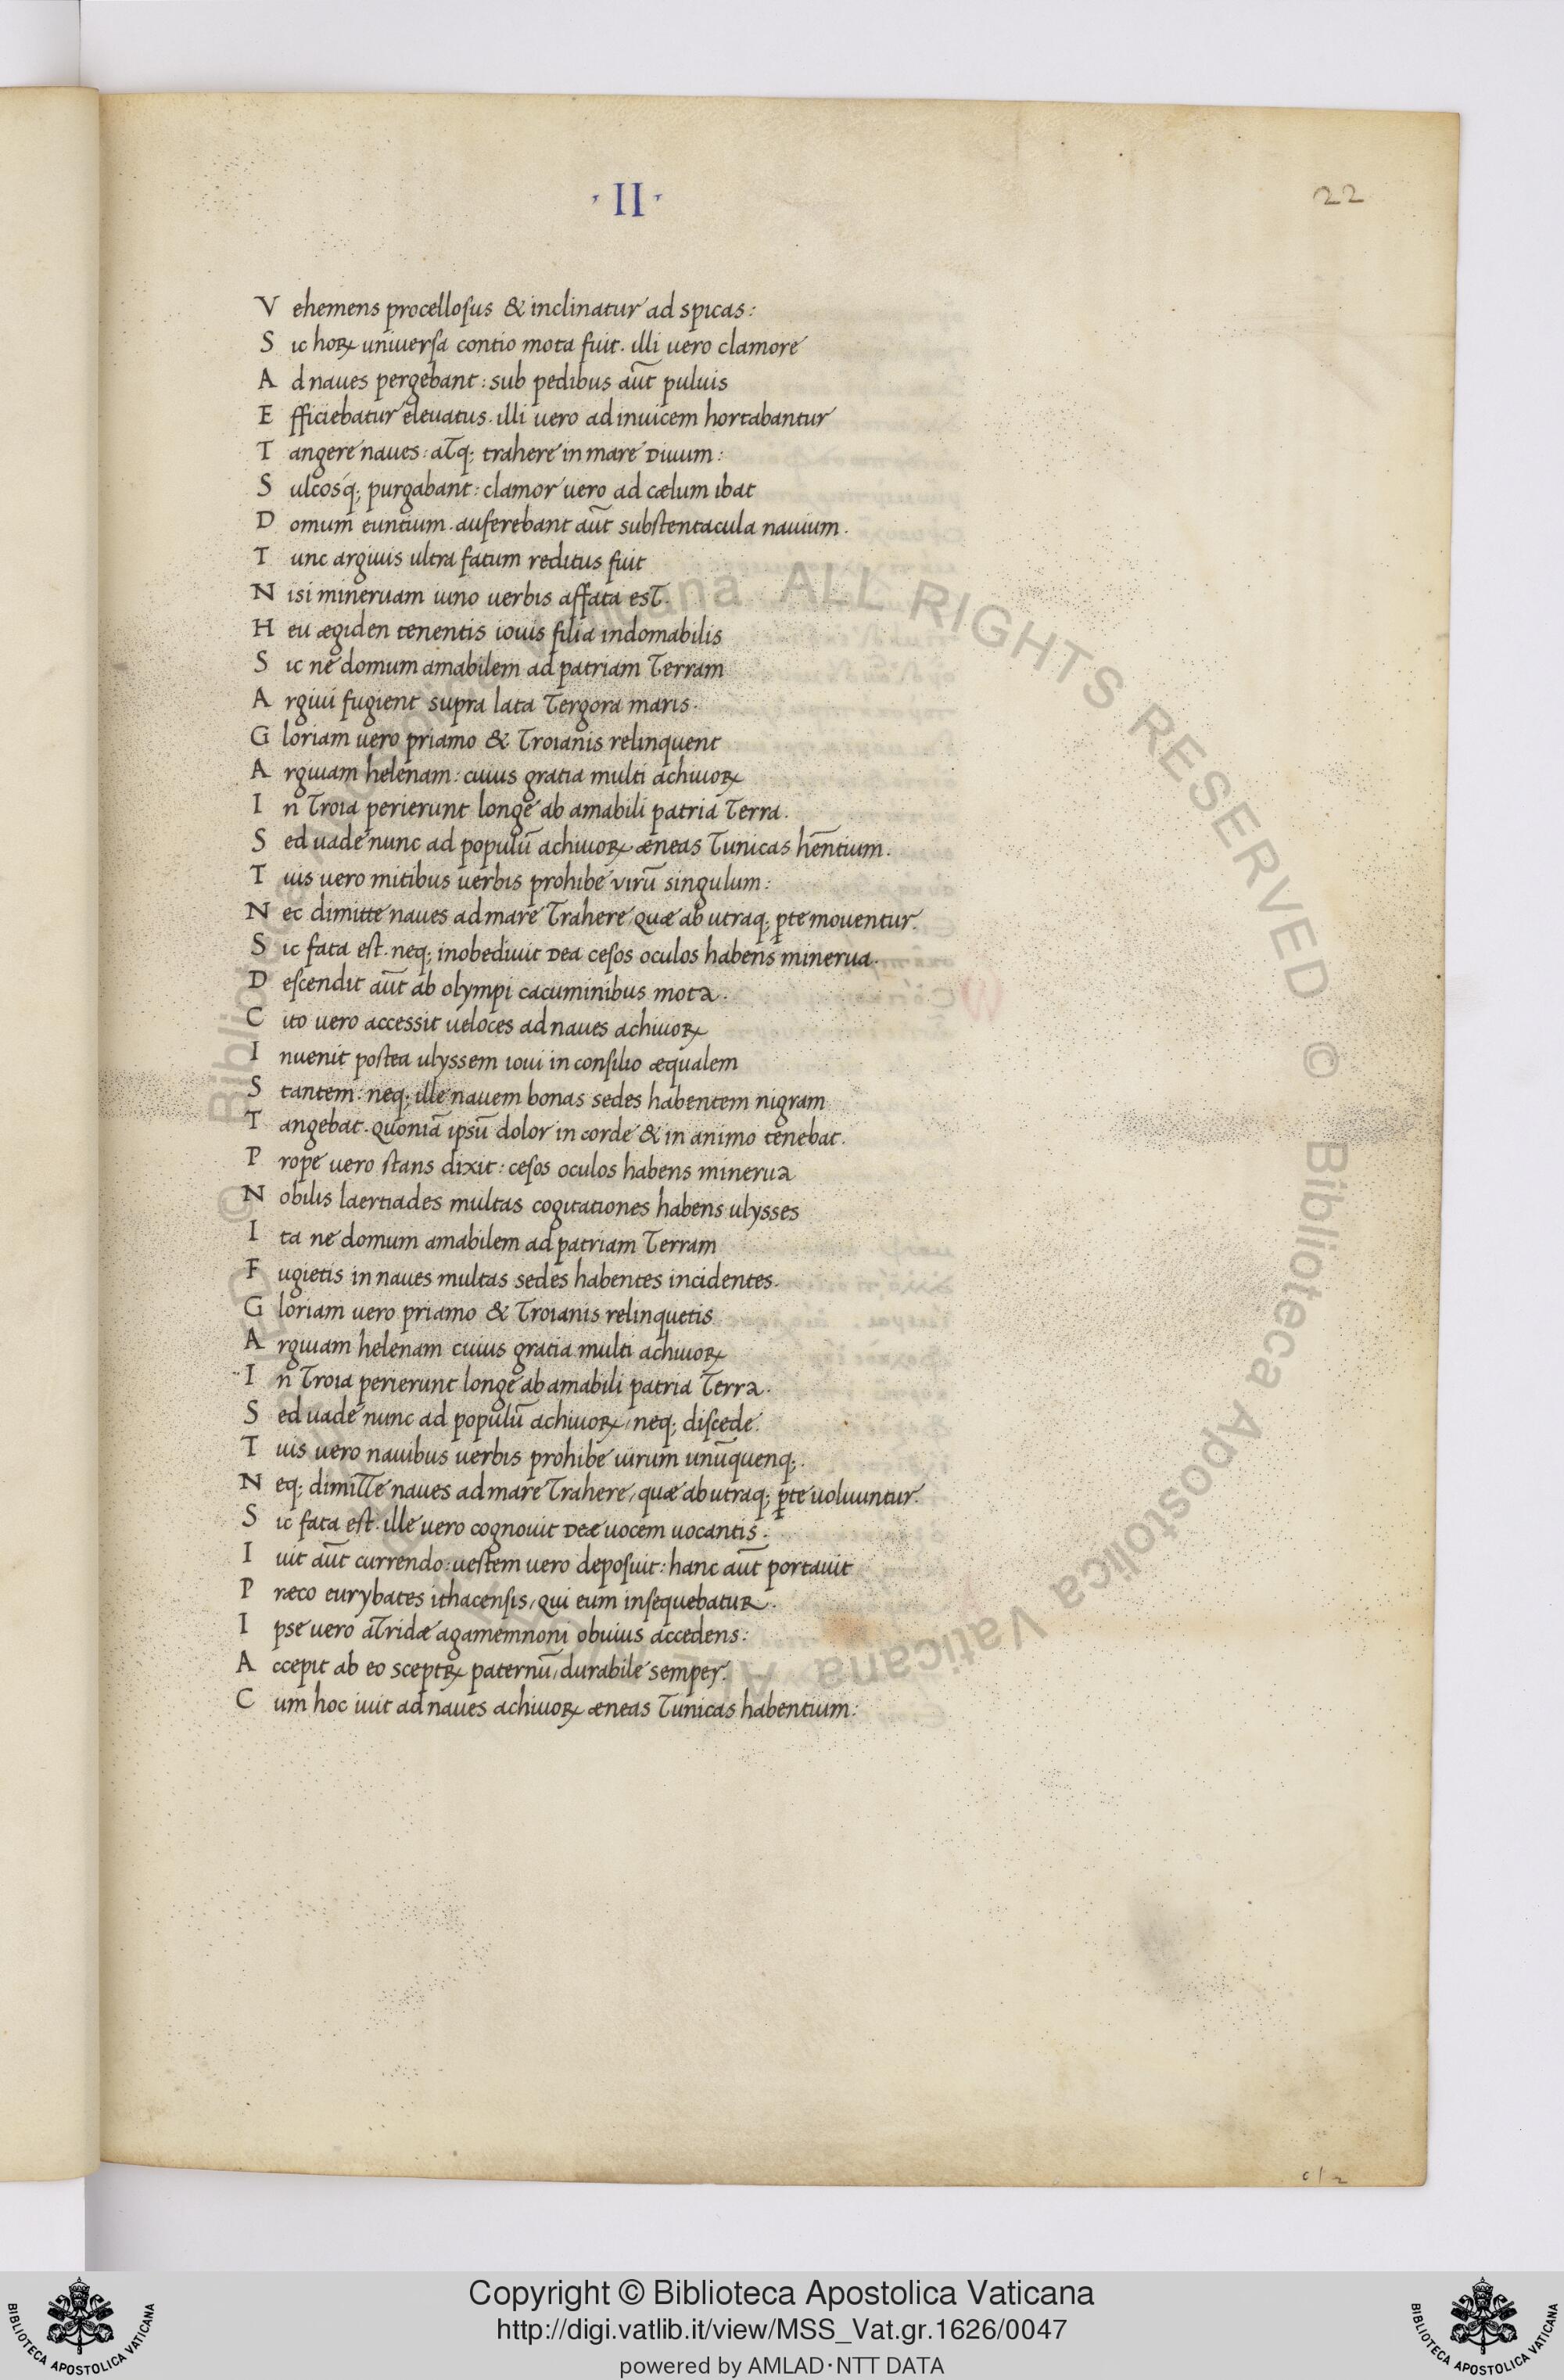 · II ·
22
V ehemens procellosus & inclinatur ad spicas:
S ic hoꝝ uniuersa contio mota fuit. illi uero clamore
A d naues pergebant: sub pedibus aūt puluis
E fficiebatur eleuatus. illi uero ad inuicem hortabantur
T angere naues: atq; trahere in mare diuum:
S ulcosq́; purgabant: clamor uero ad cælum ibat
D omum euntium. auferebant aūt substentacula nauium.
T unc argiuis ultra fatum reditus fuit
N isi mineruam iuno uerbis affata est.
H eu ægiden tenentis iouis filia indomabilis
S ic ne domum amabilem ad patriam terram
A rgiui fugient supra lata tergora maris.
G loriam uero priamo & troianis relinquent
A rgiuam helenam: cuius gratia multi achiuoꝝ
I n troia perierunt longe ab amabili patria terra.
S ed uade nunc ad populū achiuoꝝ æneas tunicas hēntium.
T uis uero mitibus uerbis prohibe virū singulum:
N ec dimitte naues ad mare trahere quæ ab utraq; ꝑte mouentur.
S ic fata est. neq; inobediuit dea cesos oculos habens minerua.
D escendit aūt ab olympi cacuminibus mota.
C ito uero accessit ueloces ad naues achiuoꝝ
I nuenit postea ulyssem ioui in consilio æqualem
S tantem: neq; ille nauem bonas sedes habentem nigram
T angebat. quoniā ipsū dolor in corde & in animo tenebat.
P rope uero stans dixit: cesos oculos habens minerua
N obilis laertiades multas cogitationes habens ulysses
I ta ne domum amabilem ad patriam terram
F ugietis in naues multas sedes habentes incidentes.
G loriam uero priamo & troianis relinquetis
A rgiuam helenam cuius gratia multi achiuoꝝ
I n troia perierunt longe ab amabili patria terra.
S ed uade nunc ad populū achiuoꝝ, neq; discede.
T uis uero nauibus uerbis prohibe uirum unūquenq;.
N eq; dimitte naues ad mare trahere, quæ ab utraq; ꝑte uoluuntur.
S ic fata est. ille uero cognouit deæ uocem uocantis.
I uit aūt currendo: uestem uero deposuit: hanc aūt portauit
P ræco eurybates ithacensis, qui eum insequebatur.
I pse uero atridæ agamemnoni obuius accedens:
A ccepit ab eo sceptꝝ paternū, durabile semper.
C um hoc iuit ad naues achiuoꝝ æneas tunicas habentium:
c/2
© Biblioteca Apostolica Vaticana ALL RIGHTS RESERVED © Biblioteca Apostolica Vaticana ALL RIGHTS RESERVED
Copyright © Biblioteca Apostolica Vaticana
http://digi.vatlib.it/view/MSS_Vat.gr.1626/0047
powered by AMLAD·NTT DATA
BIBLIOTECA APOSTOLICA VATICANA
BIBLIOTECA APOSTOLICA VATICANA